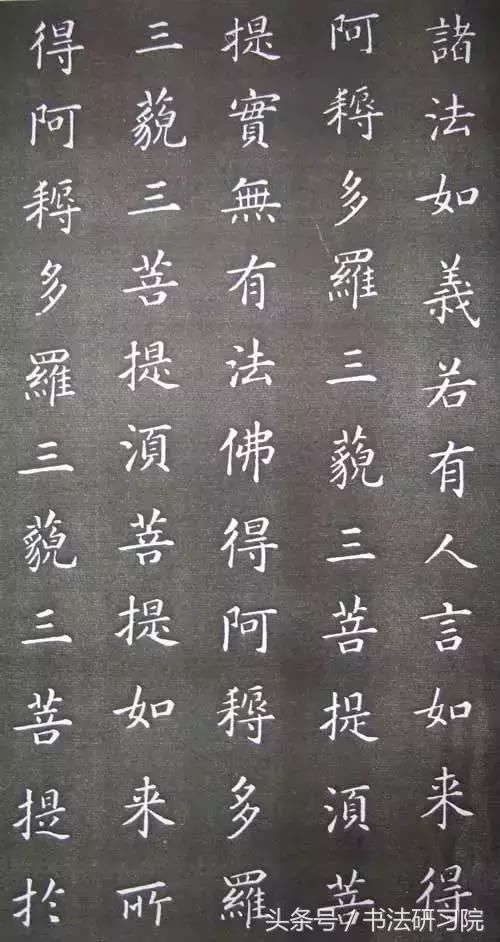 諸法如義若有人言如来得
阿耨多羅三藐三菩提湏菩
提實無有法佛得阿耨多羅
三藐三菩提湏菩提如来所
得阿耨多羅三藐三菩提於
头条号 / 书法研习院